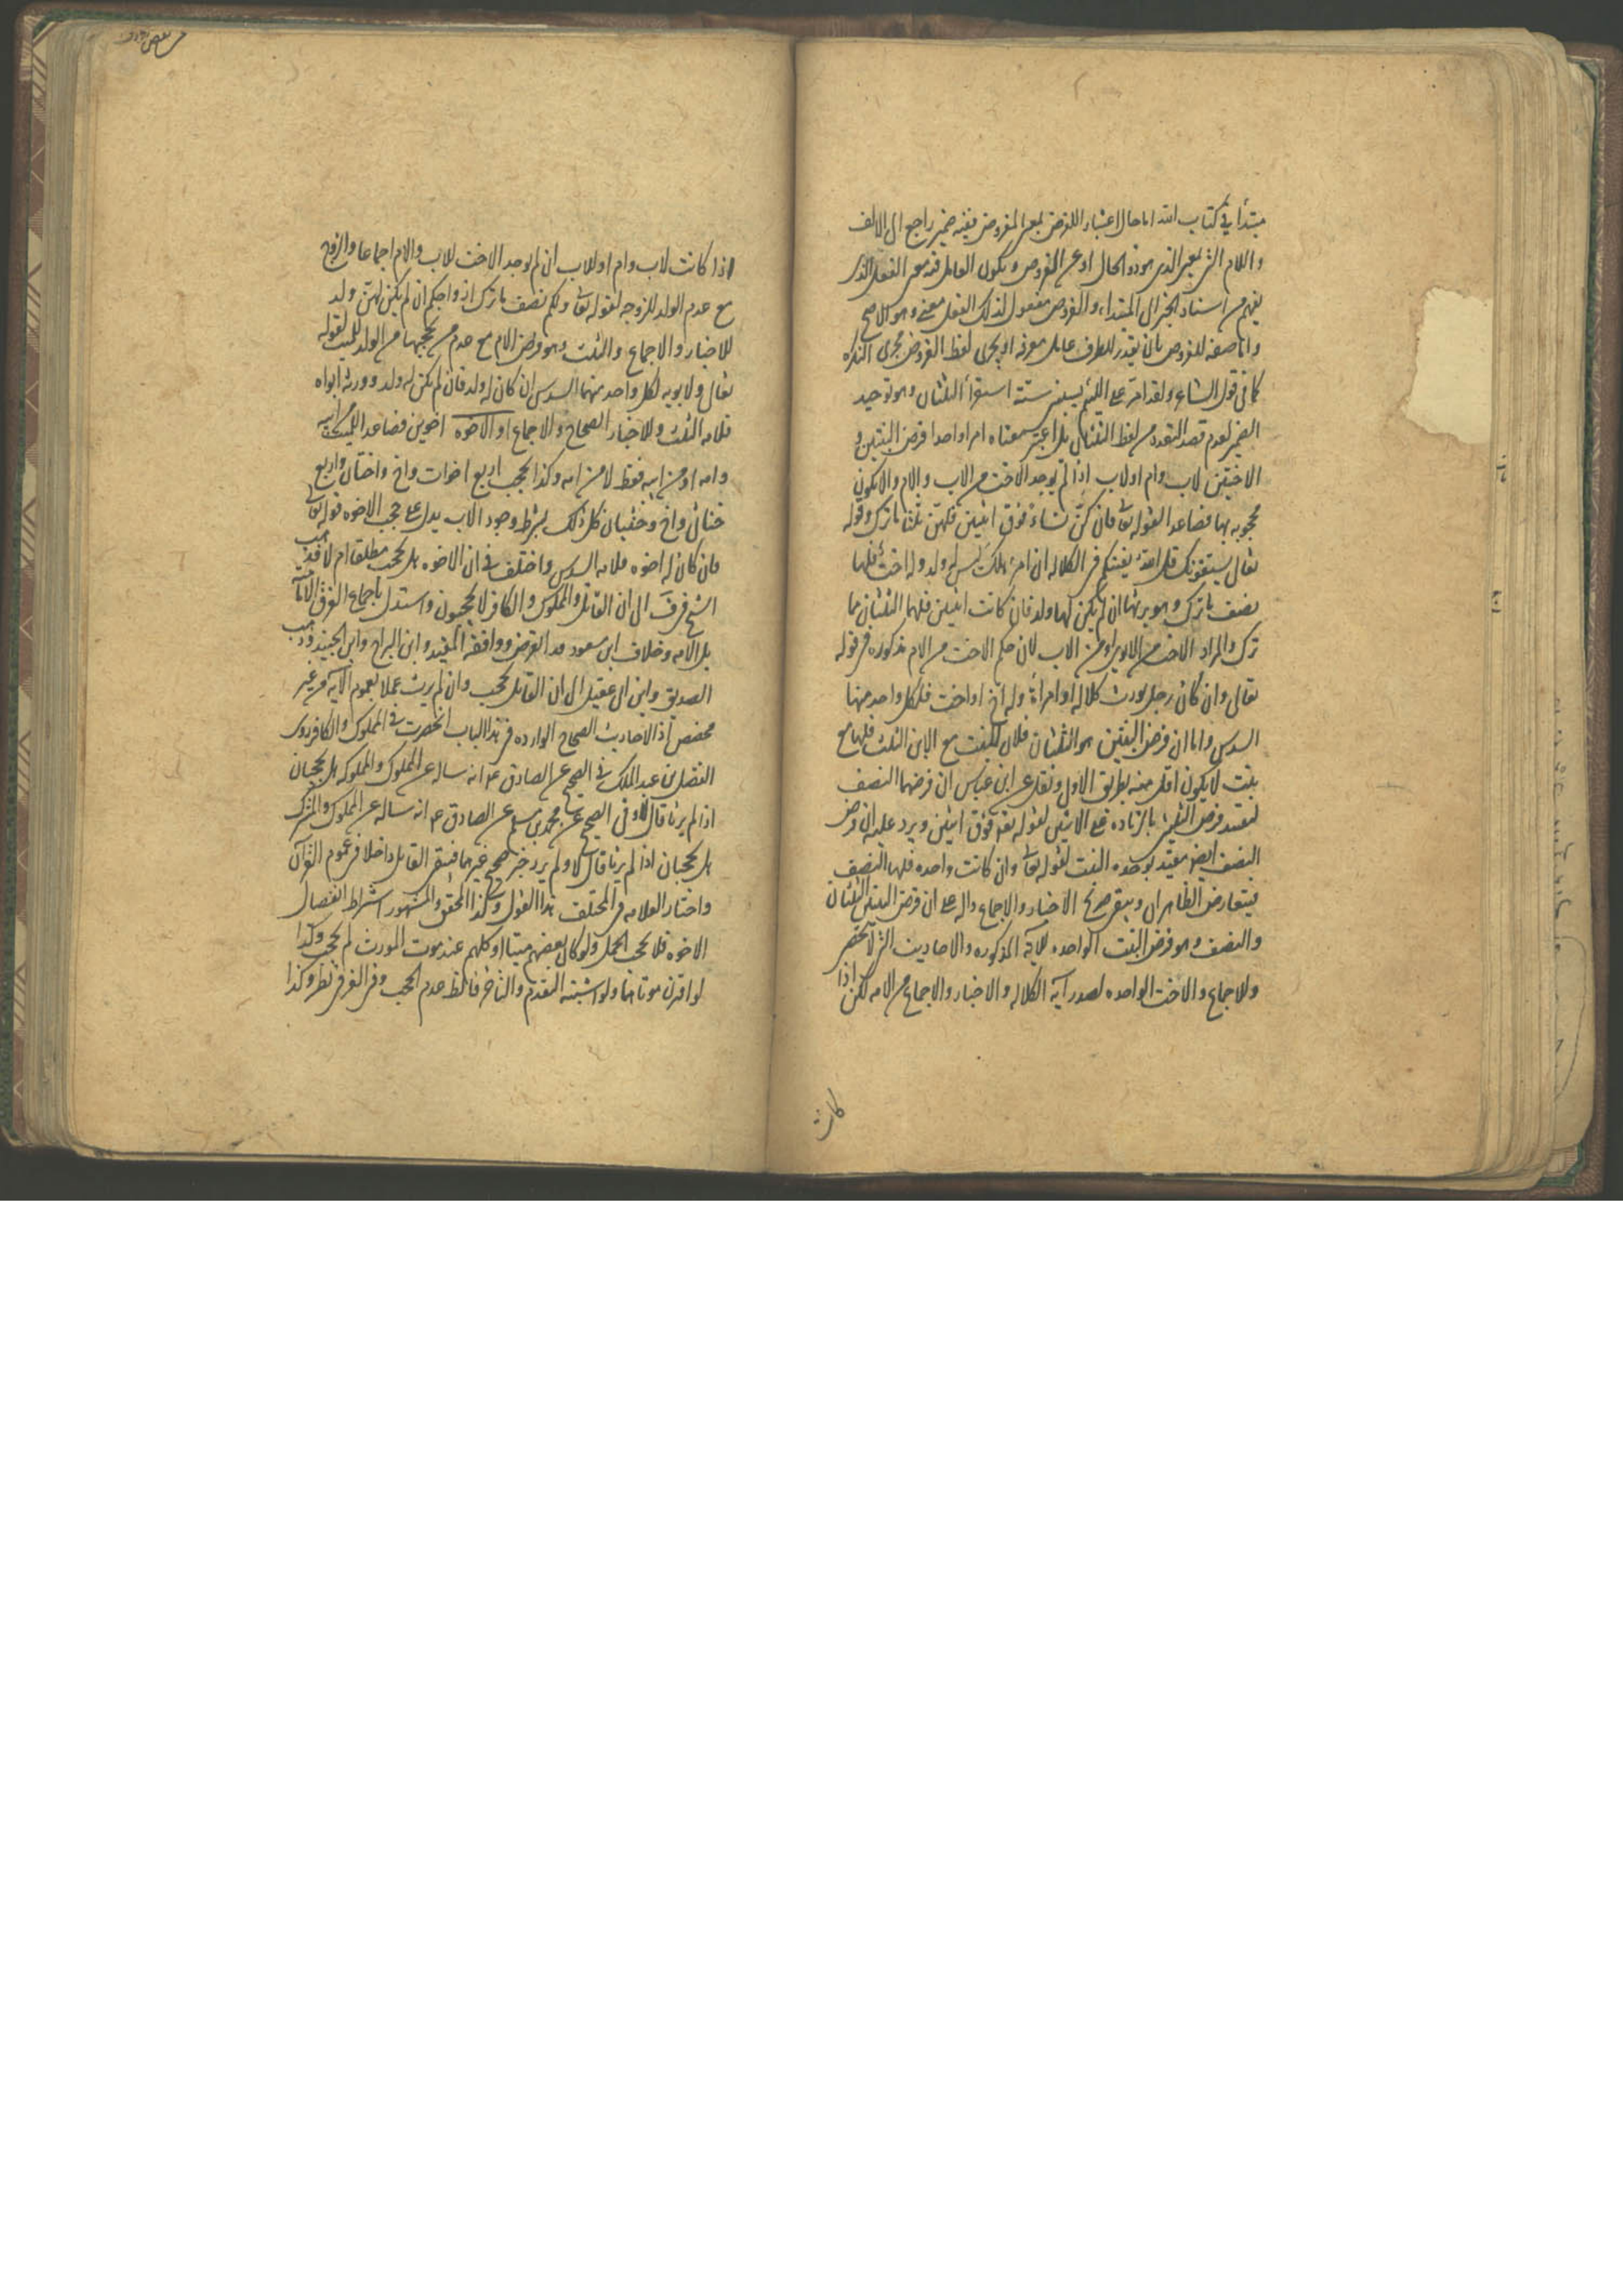 مبتدأ في كتاب الله اما حال اعتبار الفروض بمعنى المفروض ففيه ضمير راجع الى الالف
واللام التي بمعنى الذي هو ذو الحال او عن الفروض ويكون العامل فيه معنى الفعل الذي
يفهم من اسناد الخبر الى المبتداء والفروض مفعول لذلك الفعل معنى وهو الاصح
واما صفة للفروض بان يقدر للظرف عامل معرفه او يجرى لفظ الفروض مجرى النكره
كما في قول الشاعر ولقد امر على اللئيم يسبني ستة استقرأ الثلثان وهو توحيد
الضمير لعدم قصد التعدد من لفظ الثلثان بل اعتبر معناه امرا واحدا فرض البنتين و
الاختين لاب وام او لاب اذا لم يوجد الاخت من الاب والام والا يكون
محجوبه بها فصاعدا لقوله تعالى فان كن نساء فوق اثنتين فلهن ثلثا ما ترك وقوله
تعالى يستفتونك قل الله يفتيكم في الكلاله ان امرؤ هلك ليس له ولد وله اخت فلها
نصف ما ترك وهو يرثها ان لم يكن لها ولد فان كانت اثنتين فلهما الثلثان مما
ترك والمراد الاخت من الابوين او من الاب لان حكم الاخت من الام مذكوره في قوله
تعالى وان كان رجل يورث كلاله او امرأة وله اخ او اخت فلكل واحد منهما
السدس واما ان فرض البنتين هو الثلثان فلان للبنت مع الابن الثلث فلها مع
بنت لا يكون اقل منه بطريق الاولى ونقل عن ابن عباس ان فرضهما النصف
لتقييد فرض الثلثين بالزياده على الاثنتين لقوله تعالى فوق اثنتين ويرد عليه ان فرض
النصف ايضا مقيد بوحده البنت لقوله تعالى وان كانت واحده فلها النصف
فيتعارض الظاهران ويبقى صريح الاخبار والاجماع داله على ان فرض البنتين الثلثان
والنصف وهو فرض البنت الواحده للآية المذكوره والاحاديث التي لا تحصر
وللاجماع والاخت الواحده لصدر آية الكلاله والاخبار والاجماع من الامه لكن اذا
كانت
اذا كانت لاب وام او للاب ان لم يوجد الاخت للاب والام اجماعا والزوج
مع عدم الولد للزوجه لقوله تعالى ولكم نصف ما ترك ازواجكم ان لم يكن لهن ولد
للاخبار والاجماع والثلث وهو فرض الام مع عدم من يحجبها من الولد للميت لقوله
تعالى ولابويه لكل واحد منهما السدس ان كان له ولد فان لم يكن له ولد وورثه ابواه
فلامه الثلث وللاخبار الصحاح والاجماع او الاخوه اخوين فصاعدا للميت من ابيه
وامه او من ابيه فقط لا من امه وكذا يحجب اربع اخوات واخ واختان واربع
خناثى واخ وخنثيان كل ذلك بشرط وجود الاب يدل على حجب الاخوه قوله تعالى
فان كان له اخوه فلامه السدس واختلف في ان الاخوه هل يحجب مطلقا ام لا فذهب
الشيخ في ف الى ان القاتل والمملوك والكافر لا يحجبون واستدل باجماع الفرقة الاماميه
بل الامه وخلاف ابن مسعود بعد انقرض ووافقه المفيد وابن البراج وابن الجنيد وذهب
الصدوق وابن ابي عقيل الى ان القاتل يحجب وان لم يرث عملا بعموم الآيه من غير
مخصص اذ الاحاديث الصحاح الوارده في هذا الباب انحصرت في المملوك والكافر روى
الفضل بن عبد الملك في الصحيح عن الصادق ع انه ساله عن المملوك والمملوكه هل يحجبان
اذا لم يرثا قال لا وفي الصحيح عن محمد بن مسلم عن الصادق ع انه ساله عن المملوك والمشرك
هل يحجبان اذا لم يرثا قال لا ولم يرد خبر صحيح في غيرهما فبقى القاتل داخلا في عموم القرآن
واختار العلامه في المختلف هذا القول وكذا المحقق والمشهور اشتراط انفصال
الاخوه فلا يحجب الحمل ولو كان بعضهم ميتا او كلهم عند موت المورث لم يحجب وكذا
لو اقترن موتاهما ولو اشتبه المتقدم والمتاخر فالظ عدم الحجب وفي الغرقى نظر وكذا